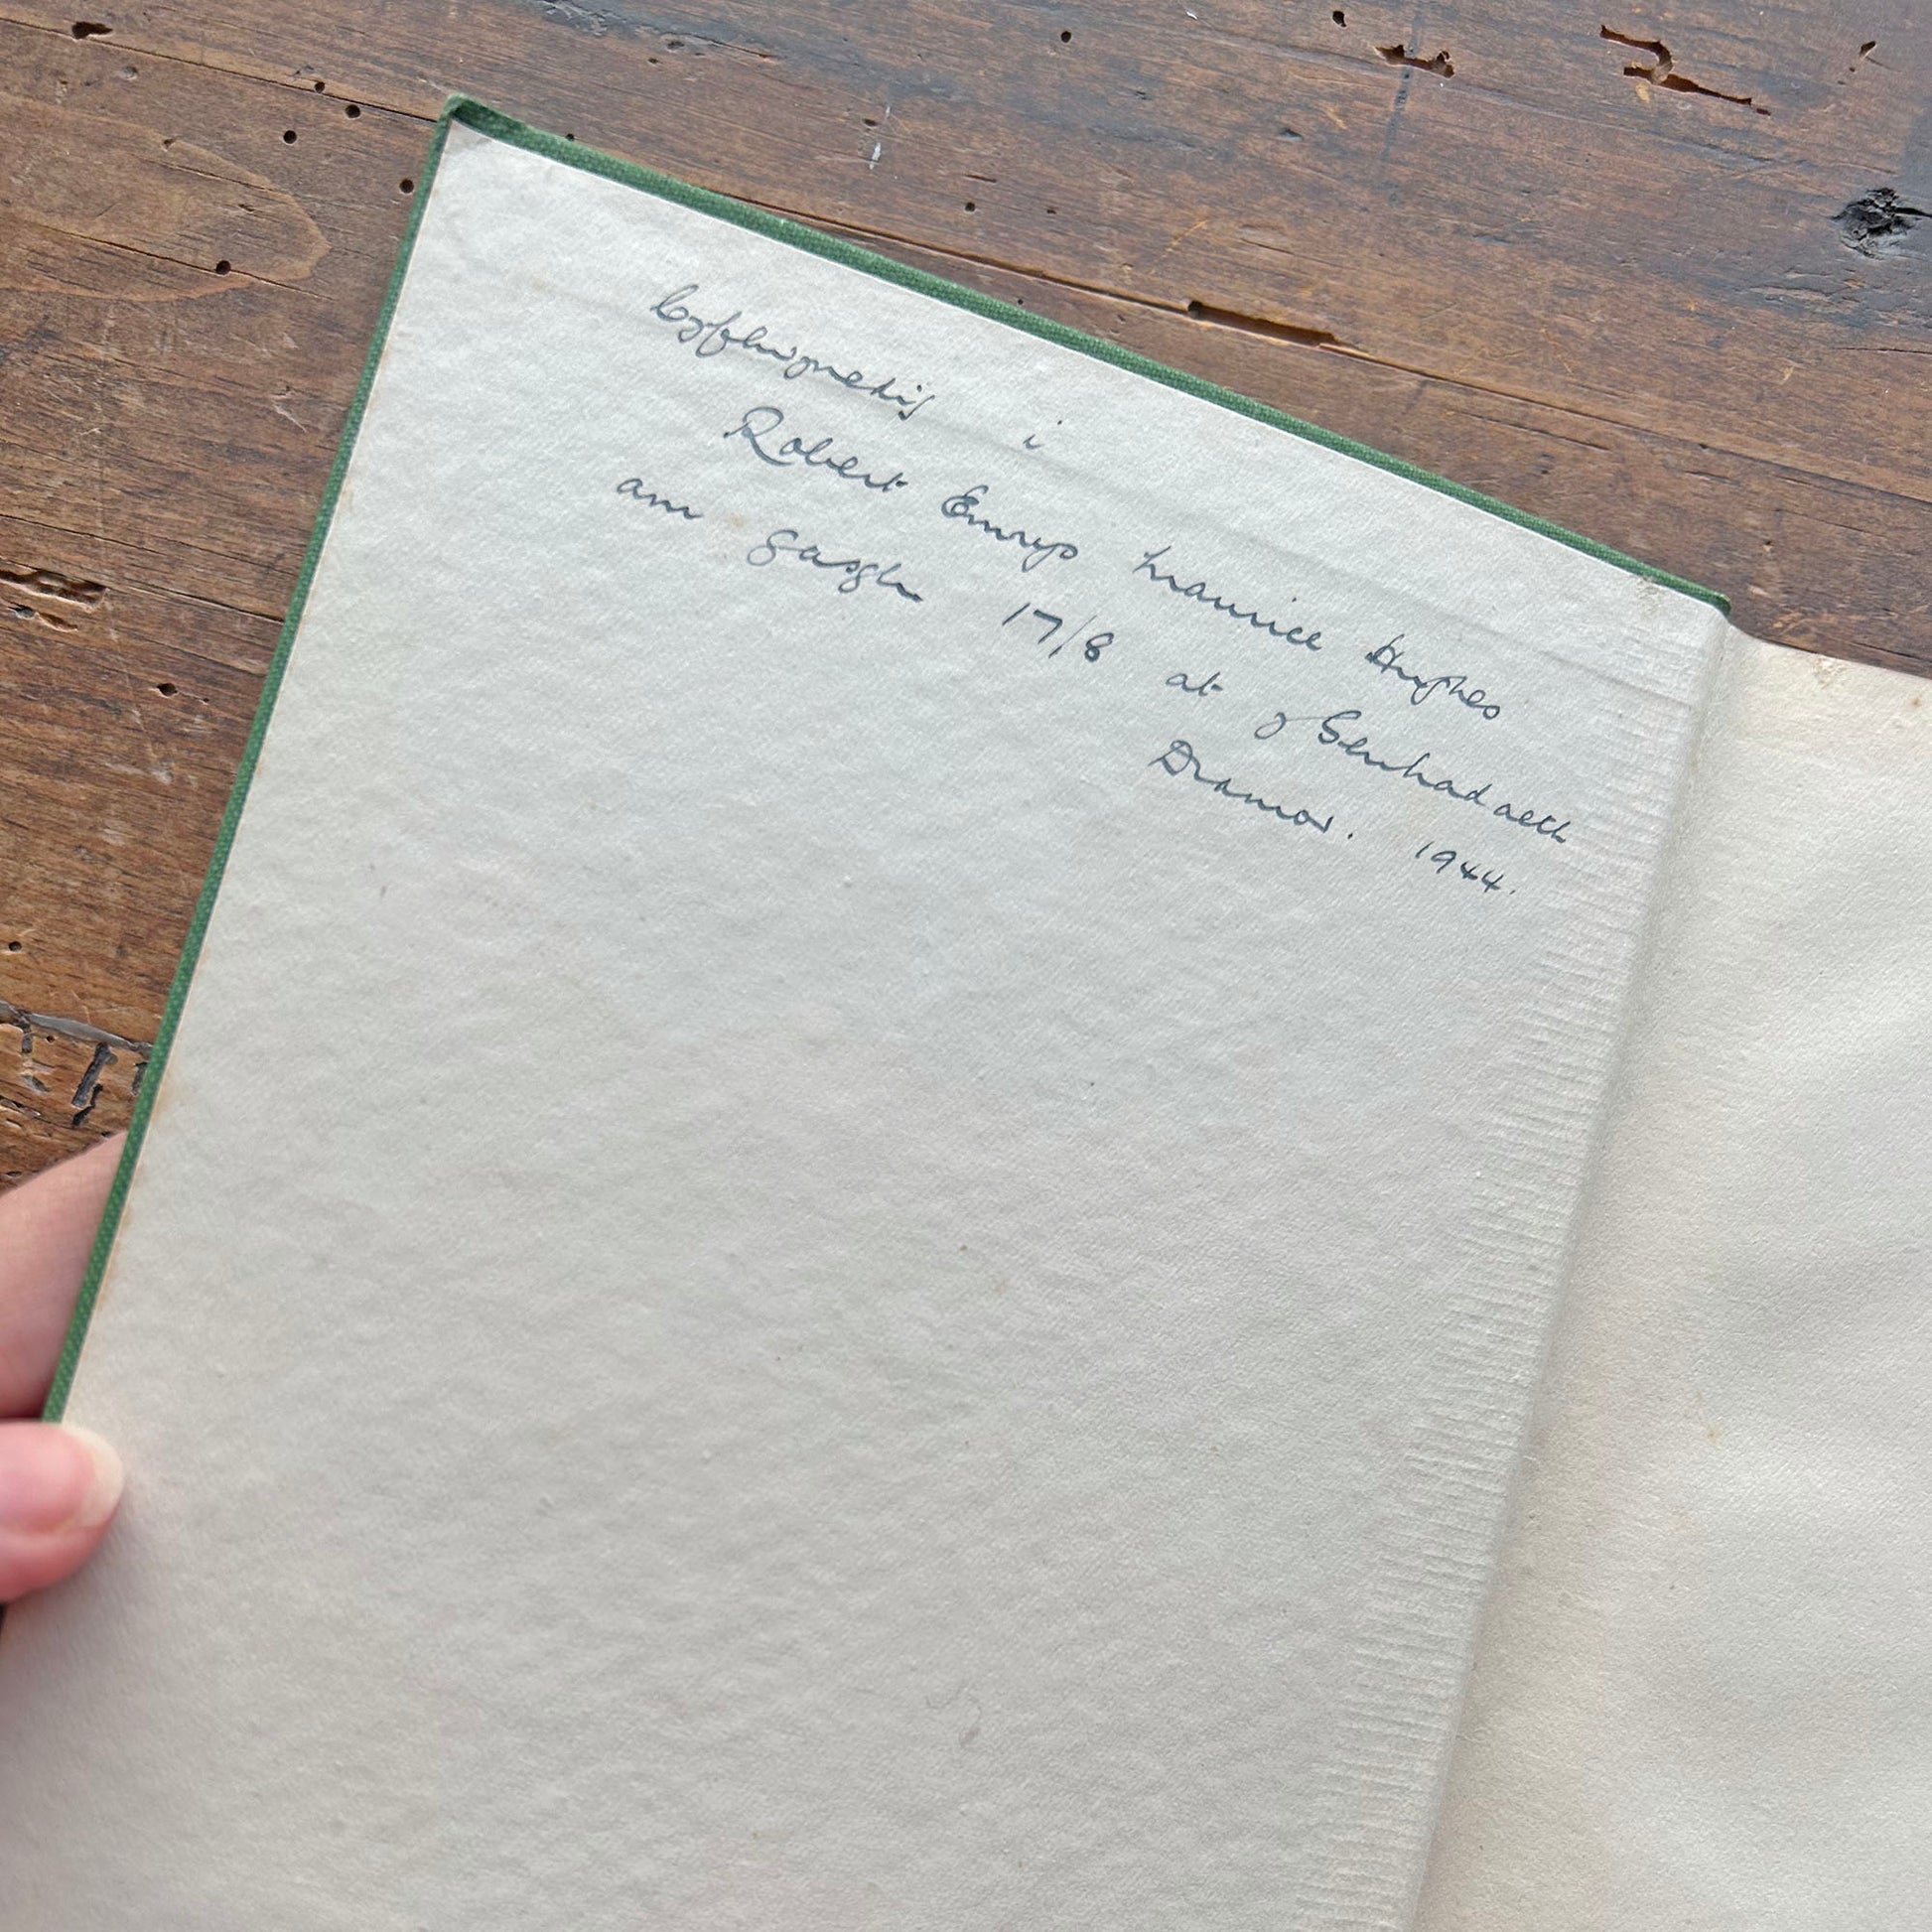 Cyflwynedig i
Robert Emrys Maurice Hughes
am gasglu 17/8 at y Genhadaeth
Dramor. 1944.